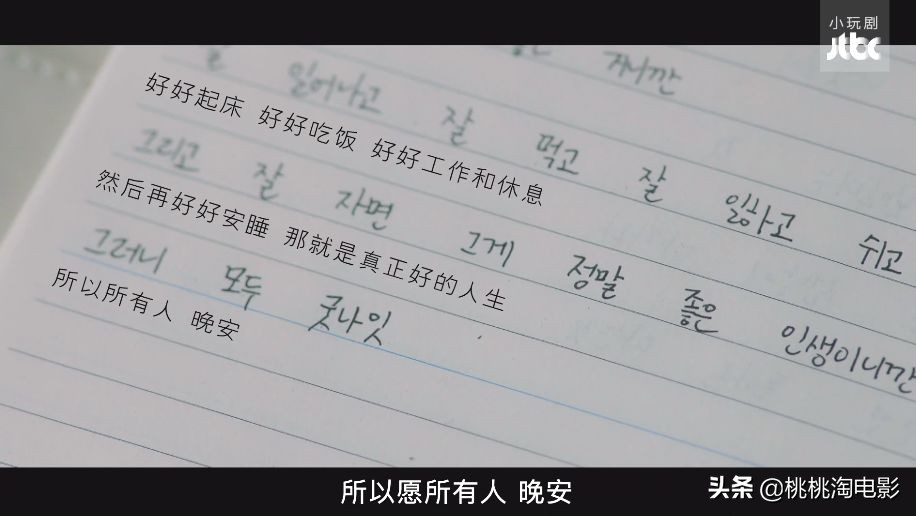 小玩剧
jtbc
지니깐
일어나고 잘 먹고 잘 일하고 쉬고
好好起床 好好吃饭 好好工作和休息
그리고 잘 자면 그게 정말 좋은 인생이니깐
然后再好好安睡 那就是真正好的人生
그러니 모두 굿나잇
所以所有人 晚安
所以愿所有人 晚安
头条 @桃桃淘电影